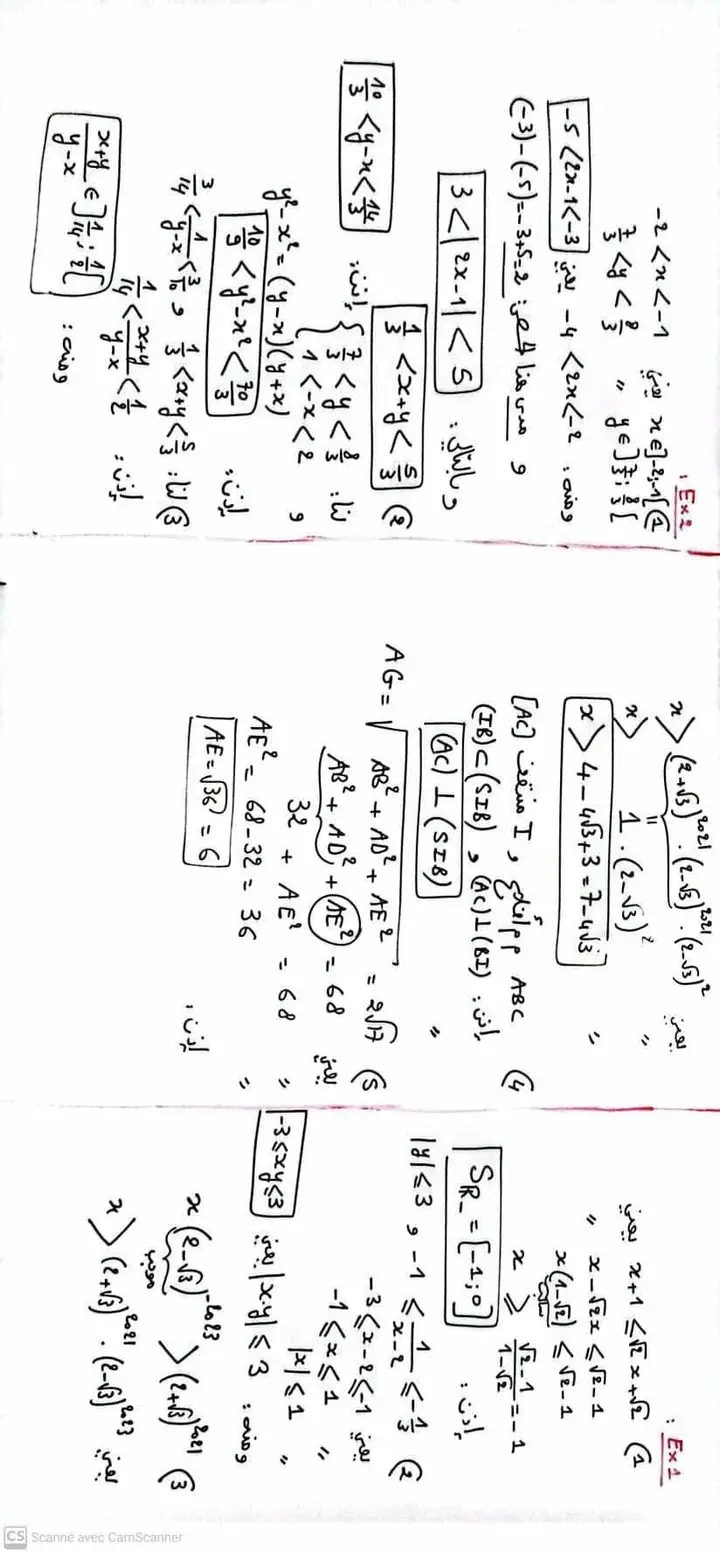 Ex1 :
1) x+1 ≤ √2 x+√2 يعني
" x-√2x ≤ √2-1
x(1-√2) ≤ √2-1
سالب
x ≥ (√2-1)/(1-√2) = -1
إذن :
S_R_ = [-1;0]
2) |y| ≤ 3 و -1 ≤ 1/(x-2) ≤ -1/3
يعني -3 ≤ x-2 ≤ -1
" -1 ≤ x ≤ 1
" |x| ≤ 1
ومنه : |x.y| ≤ 3 يعني -3≤xy≤3
3) x(2-√3)^-2023 > (2+√3)^2021
موجب
يعني x > (2+√3)^2021 . (2-√3)^2023
يعني x > (2+√3)^2021 . (2-√3)^2021 . (2-√3)^2
" x > 1 . (2-√3)^2
" x > 4-4√3+3 = 7-4√3
4) ABC م م أضلع و I منتصف [AC]
إذن : (AC)⊥(BI) و (IB)⊂(SIB)
" (AC) ⊥ (SIB)
5) AG = √(AB²+AD²+AE²) = 2√17
يعني AB²+AD²+AE² = 68
" 32 + AE² = 68
" AE² = 68-32 = 36
إذن : AE=√36 = 6
Ex2 :
1) x∈]-2;-1[ يعني -2<x<-1
y∈]7/3;8/3[ " 7/3<y<8/3
ومنه : -4<2x<-2 يعني -5<2x-1<-3
و من هنا : (-3)-(-5)=-3+5=2
وبالتالي : 3<|2x-1|<5
2) 1/3 < x+y < 5/3
لنا : 7/3 < y < 8/3
و 1 < -x < 2
إذن : 10/3 < y-x < 14/3
y²-x² = (y-x)(y+x)
إذن : 10/9 < y²-x² < 70/3
3) لنا : 1/3 < x+y < 5/3 و 3/14 < 1/(y-x) < 3/10
إذن : 1/14 < (x+y)/(y-x) < 1/2
ومنه : (x+y)/(y-x) ∈ ]1/14;1/2[
CS Scanné avec CamScanner